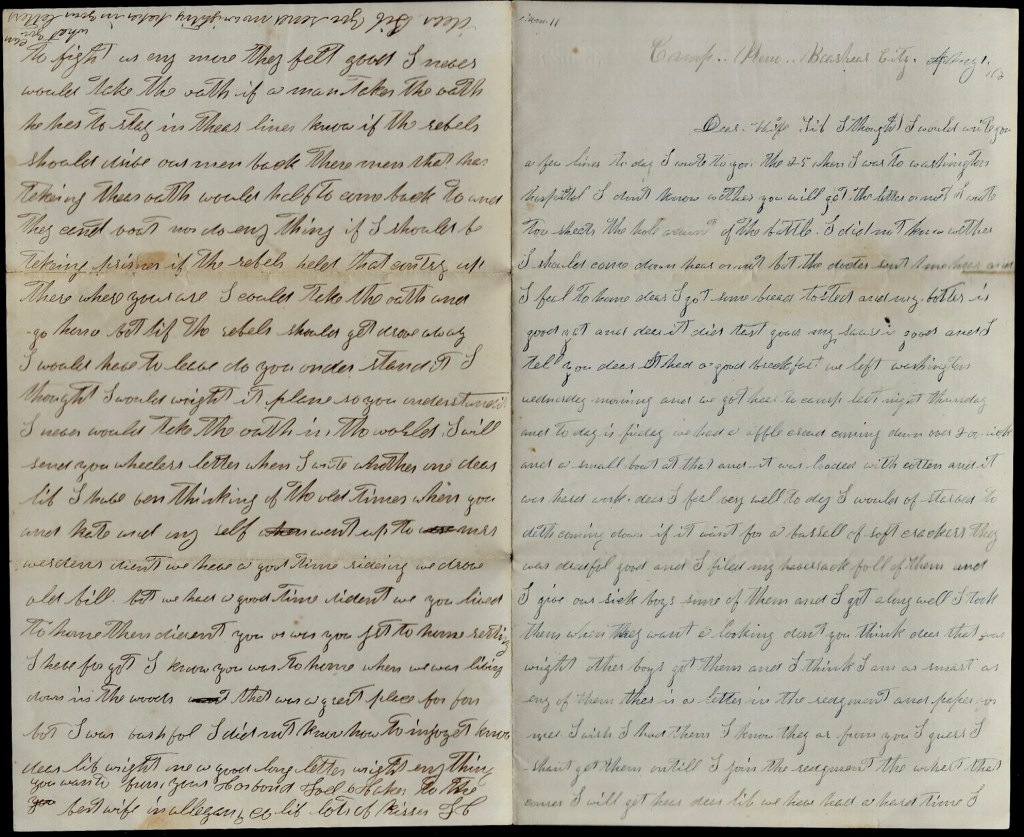 Camp Near Brashear City
Dear Wife Lib I thought I would write you
a few lines to day I wrote to you the 25 when I was to washington
hospital I dont know wether you will get the letter or not I wrote
two sheets the hole of the battle. I did not know wether
I should come down hear or not but the docter sent me here and
I feel to home dear I got some bread tosted and my botter is
good yet and dear it did tast good my is good and I
tell you dear I had a good breckfast we left washington
wednesday morning and we got hear to camp last night thursday
and to day is friday we had a offle coming down over 200 sick
and a small boat at that and it was loaded with cotten and it
was hard work dear I feel very well to day I would of starved to
deth coming down if it want for a barrell of soft crackers they
was dredful good and I filed my haversack foll of them and
I give our sick boys some of them and I got along well I took
them when they want a looking dont you think dear that was
wright other boys got them and I think I am as smart as
eny of them ther is a letter in the redgment and paper for
me I wish I had them I know they ar from you I guess I
shant get them ontill I join the redgment the next that
comes I will get hear dear lib we have had a hard time I
to fight us eny more they felt good I never
would take the oath if a man takes the oath
he hes to stay in thear lines know if the rebels
should drive our men back there men that has
tekeing thear oath would haft to come back to and
they cant vout nor do eny thing if I should be
tekeing prisner if the rebels held that contry up
there where you are I could take the oath and
go home but if the rebels should get drove away
I would have to leave do you onder stand it I
thought I would wright it plane so you understand it
I never would take the oath in the world. I will
send you wheelers letter when I write another one dear
lib I have ben thinking of the old times when you
and kate and my self went up to mrs
werdens dient we have a good time rideing we drove
old bill. but we had a good time dident we you lived
to home then dicent you or was you jst to home
I have forgot I know you was to home when we was living
down in the woods that was a great place for fon
bot I was bashfol I did not know how to injoy it know
dear lib wright me a good long letter wright eny thing
you want to yours, your Hosbond Joel to the
best wife in allegany co lib lots of kisses
dear Lib you send me in your letters
what you can